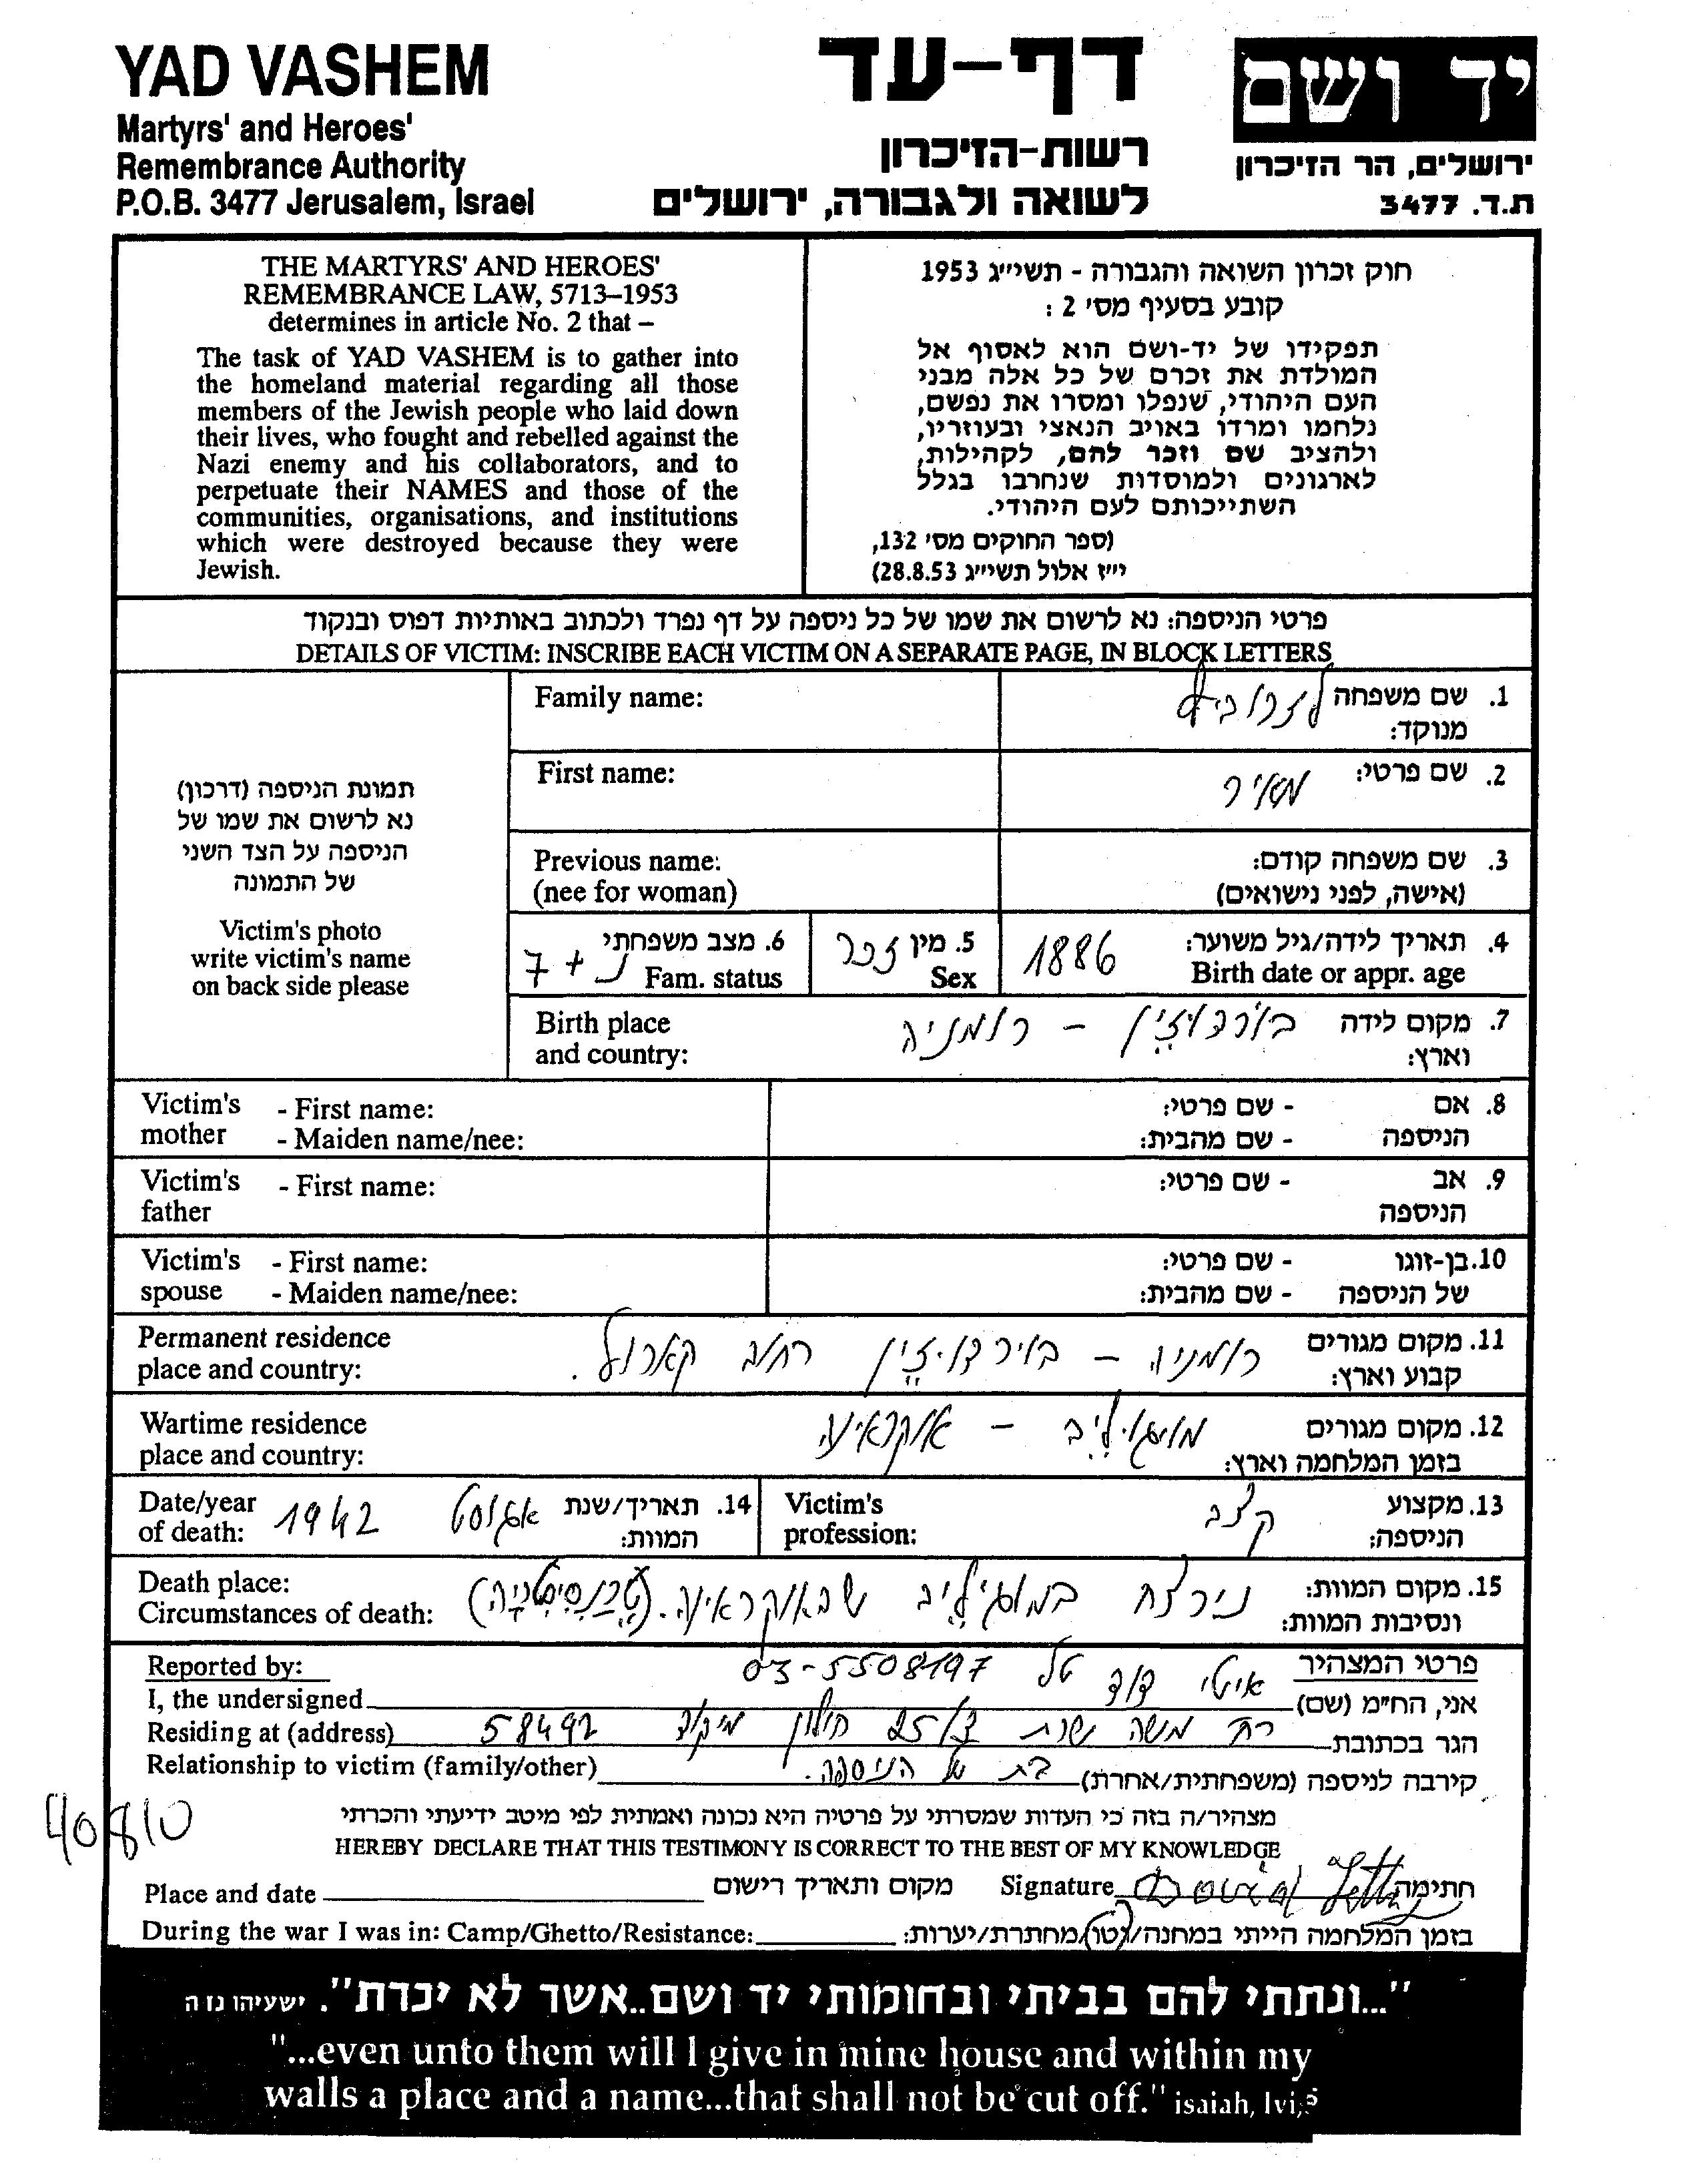 YAD VASHEM
Martyrs' and Heroes'
Remembrance Authority
P.O.B. 3477 Jerusalem, Israel
דף-עד
רשות-הזיכרון
לשואה ולגבורה, ירושלים
יד ושם
ירושלים, הר הזיכרון
ת.ד. 3477
THE MARTYRS' AND HEROES'
REMEMBRANCE LAW, 5713–1953
determines in article No. 2 that –
The task of YAD VASHEM is to gather into
the homeland material regarding all those
members of the Jewish people who laid down
their lives, who fought and rebelled against the
Nazi enemy and his collaborators, and to
perpetuate their NAMES and those of the
communities, organisations, and institutions
which were destroyed because they were
Jewish.
חוק זכרון השואה והגבורה - תשי״ג 1953
קובע בסעיף מס׳ 2 :
תפקידו של יד-ושם הוא לאסוף אל
המולדת את זכרם של כל אלה מבני
העם היהודי, שנפלו ומסרו את נפשם,
נלחמו ומרדו באויב הנאצי ובעוזריו,
ולהציב שם וזכר להם, לקהילות,
לארגונים ולמוסדות שנחרבו בגלל
השתייכותם לעם היהודי.
(ספר החוקים מס׳ 132,
י״ז אלול תשי״ג 28.8.53)
פרטי הניספה: נא לרשום את שמו של כל ניספה על דף נפרד ולכתוב באותיות דפוס ובנקוד
DETAILS OF VICTIM: INSCRIBE EACH VICTIM ON A SEPARATE PAGE, IN BLOCK LETTERS
תמונת הניספה (דרכון)
נא לרשום את שמו של
הניספה על הצד השני
של התמונה
Victim's photo
write victim's name
on back side please
Family name:
1. שם משפחה
מנוקד:
First name:
2. שם פרטי: מאיר
Previous name:
(nee for woman)
3. שם משפחה קודם:
(אישה, לפני נישואים)
4. תאריך לידה/גיל משוער: 1886
Birth date or appr. age
5. מין זכר
Sex
6. מצב משפחתי נ + 7
Fam. status
Birth place
and country:
7. מקום לידה - רומניה
וארץ:
Victim's mother - First name:
- Maiden name/nee:
8. אם הניספה - שם פרטי:
- שם מהבית:
Victim's father - First name:
9. אב הניספה - שם פרטי:
Victim's spouse - First name:
- Maiden name/nee:
10. בן-זוגו של הניספה - שם פרטי:
- שם מהבית:
Permanent residence
place and country:
11. מקום מגורים קבוע וארץ: רומניה - רחוב קארול.
Wartime residence
place and country:
12. מקום מגורים בזמן המלחמה וארץ: מוגילב - אוקראינה
Date/year of death:
14. תאריך/שנת המוות: אוגוסט 1942
Victim's profession:
13. מקצוע הניספה: קצב
Death place:
Circumstances of death:
15. מקום המוות: ונסיבות המוות: נירצח במוגילב שבאוקראינה. (טרנסניסטריה)
Reported by:
פרטי המצהיר
I, the undersigned
אני, הח״מ (שם) איטי דוד טל 03-5508197
Residing at (address)
הגר בכתובת רח משה שרת 25/ חולון מיקוד 58492
Relationship to victim (family/other)
קירבה לניספה (משפחתית/אחרת) בת של הניספה.
40810
מצהיר/ה בזה כי העדות שמסרתי על פרטיה היא נכונה ואמתית לפי מיטב ידיעתי והכרתי
HEREBY DECLARE THAT THIS TESTIMONY IS CORRECT TO THE BEST OF MY KNOWLEDGE
Place and date
מקום ותאריך רישום
Signature David
חתימה
During the war I was in: Camp/Ghetto/Resistance:
בזמן המלחמה הייתי במחנה/גטו/מחתרת/יערות:
"...ונתתי להם בביתי ובחומותי יד ושם..אשר לא יכרת". ישעיהו נו ה
"...even unto them will I give in mine house and within my
walls a place and a name...that shall not be cut off." isaiah, lvi,5